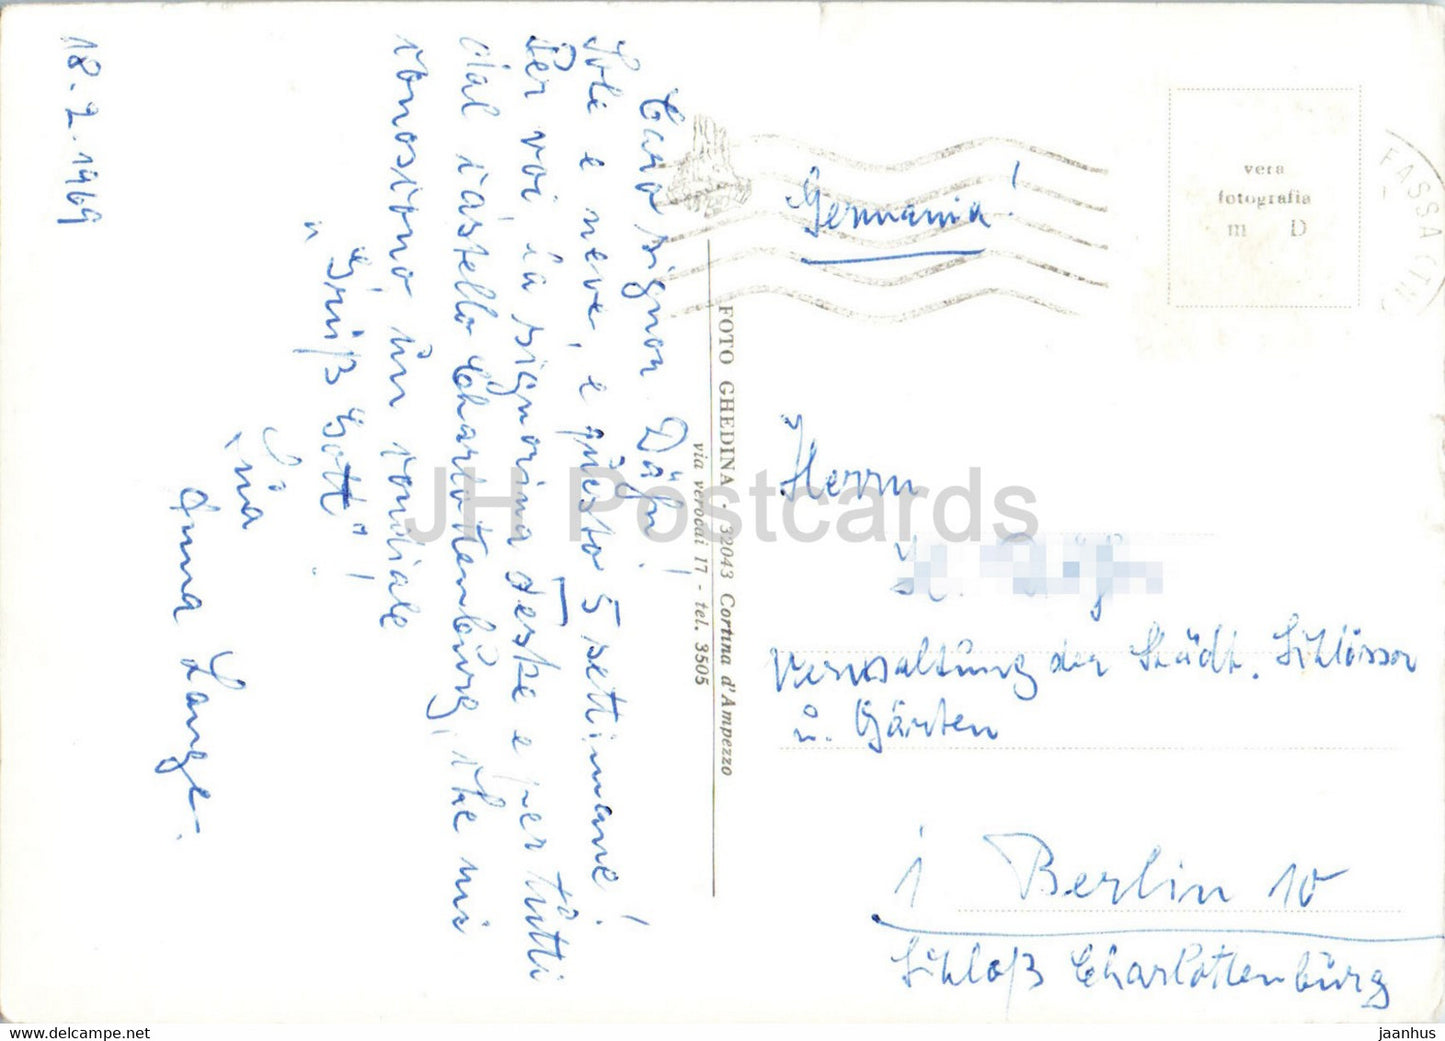 18.2.1969
Caro signor Däfn!
Sole e neve, e questo 5 settimane!
Per voi, la signorina Teske e per tutti
dal castello Charlottenburg, che mi
conoscono, un cordiale
"Grüß Gott"!
Sua
Anna Lange.
FOTO GHEDINA · 32043 Cortina d'Ampezzo
via verocai 17 - tel. 3505
Germania!
vera
fotografia
m D
FASSA (TN)
Herrn
Verwaltung der Städt. Schlösser
u. Gärten
1 Berlin 10
Schloß Charlottenburg
JH Postcards
www.delcampe.net
jaanhus